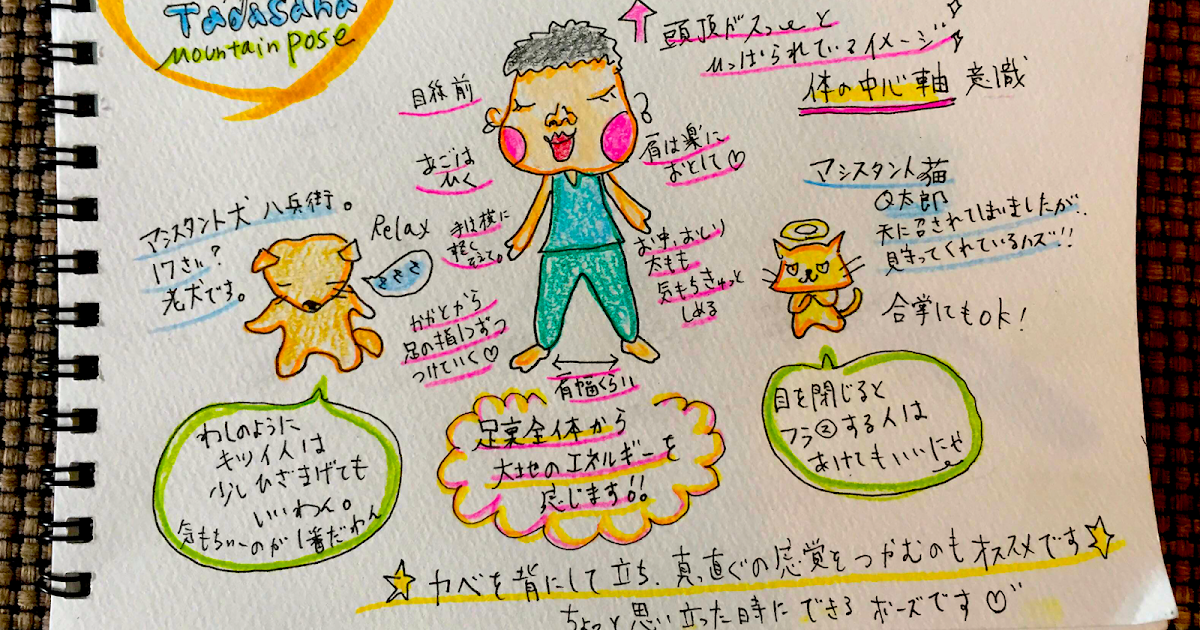 Tadasana
mountain pose
頭頂がスーっと
ひっぱられているイメージ
体の中心軸 意識
目線前
あごは
ひく
肩は楽に
おとして♡
手は横に
軽く
そえて。
お中、おしり
太もも
気もちきゅっと
しめる
かかとから
足の指1つずつ
つけていく♡
肩幅くらい
Relax
アシスタント犬 八兵衛。
17さい?
老犬です。
アシスタント猫
Q太郎
天に召されてしまいましたが、
見守ってくれているハズ!!
合掌にてもOK!
わしのように
キツイ人は
少しひざまげても
いいわん。
気もちいーのが1番だわん
足裏全体から
大地のエネルギーを
感じます!!
目を閉じると
フラ②する人は
あけてもいいにゃ
☆カベを背にして立ち、真っ直ぐの感覚をつかむのもオススメです☆
ちょっと思い立った時にできるポーズです♡